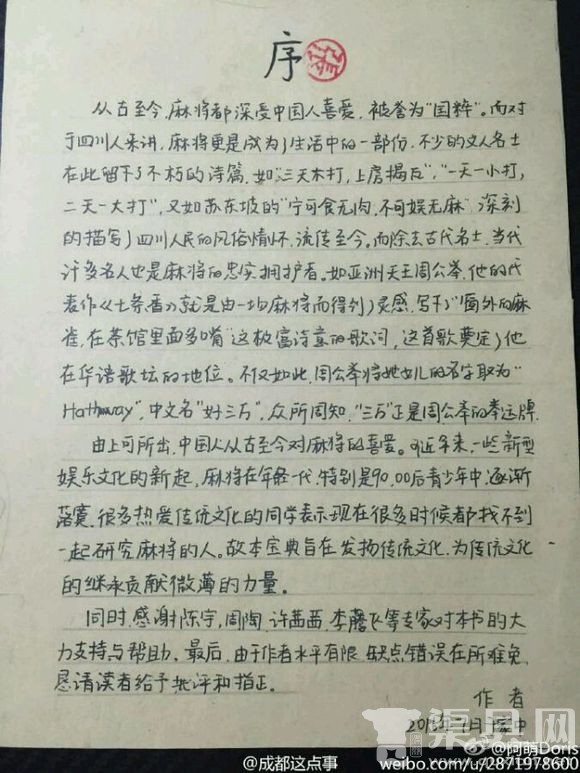 序
从古至今,麻将都深受中国人喜爱,被誉为"国粹"。而对
于四川人来讲,麻将更是成为了生活中的一部份,不少的文人名士
在此留下了不朽的诗篇,如"三天不打,上房揭瓦","一天一小打,
二天一大打",又如苏东坡的"宁可食无肉,不可娱无麻",深刻
的描写了四川人民的风俗情怀,流传至今。而除去古代名士,当代
许多名人也是麻将的忠实拥护者。如亚洲天王周公举,他的代
表作《七条番》就是由一场麻将而得到了灵感,写下了"窗外的麻
雀,在茶馆里面多嘴"这极富诗意的歌词,这首歌奠定了他
在华语歌坛的地位。不仅如此,周公举将她女儿的名字取为"
Hathaway",中文名"好三万",众所周知,"三万"正是周公举的幸运牌.
由上可所出,中国人从古至今对麻将的喜爱。可近年来,一些新型
娱乐文化的新起,麻将在年轻一代,特别是90,00后青少年中,逐渐
落寞,很多热爱传统文化的同学表示现在很多时候都找不到
一起研究麻将的人。故本宝典旨在发扬传统文化,为传统文化
的继承贡献微薄的力量。
同时,感谢陈宇,周陶,许茜茜,李腾飞等专家对本书的大
力支持与帮助。最后,由于作者水平有限,缺点错误在所难免,
恳请读者给予批评和指正。
作者
渠县网
@成都这点事
@阿萌Doris
weibo.com/u/2871978600